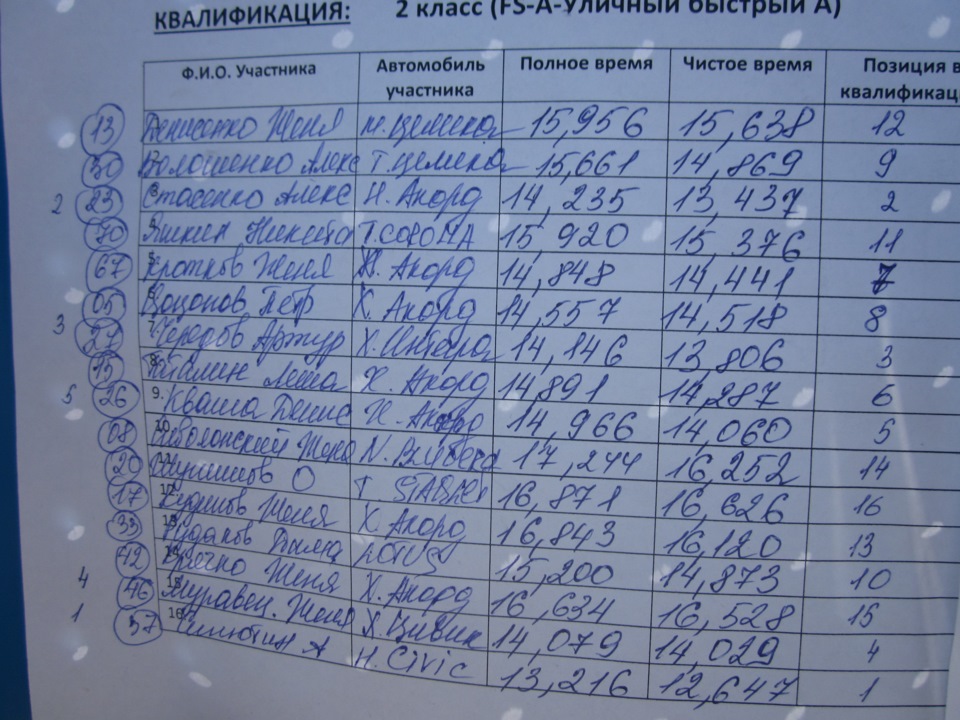 КВАЛИФИКАЦИЯ: 2 класс (FS-A-Уличный быстрый А)
Ф.И.О. Участника Автомобиль участника Полное время Чистое время Позиция в квалификац
13 Денисенко Женя 15,956 15,638 12
30 Волошенко Алекс 15,661 14,869 9
2 23 Стасенко Алекс Н. Акорд 14,235 13,437 2
Никита 15 920 15,376 11
67 Кротков Женя Х. Акорд 14,848 14,441 7
05 Петр Х. Акорд 14,557 14,518 8
3 27 7. Артур 14,146 13,806 3
15 8. Леша Х. Акорд 14,891 14,287 6
5 26 9. Кваша Денис Х. Акорд 14,966 14,060 5
08 10. Женя 17,244 16,252 14
20 О 16,871 16,626 16
17 Женя Х. Акорд 16,843 16,120 13
33 LOTUS 15,200 14,873 10
Женя Х. Акорд 16,634 16,528 15
4 46 Муравен. Женя Х. Цивик 14,079 14,029 4
1 37 16. А Н. Civic 13,216 12,647 1